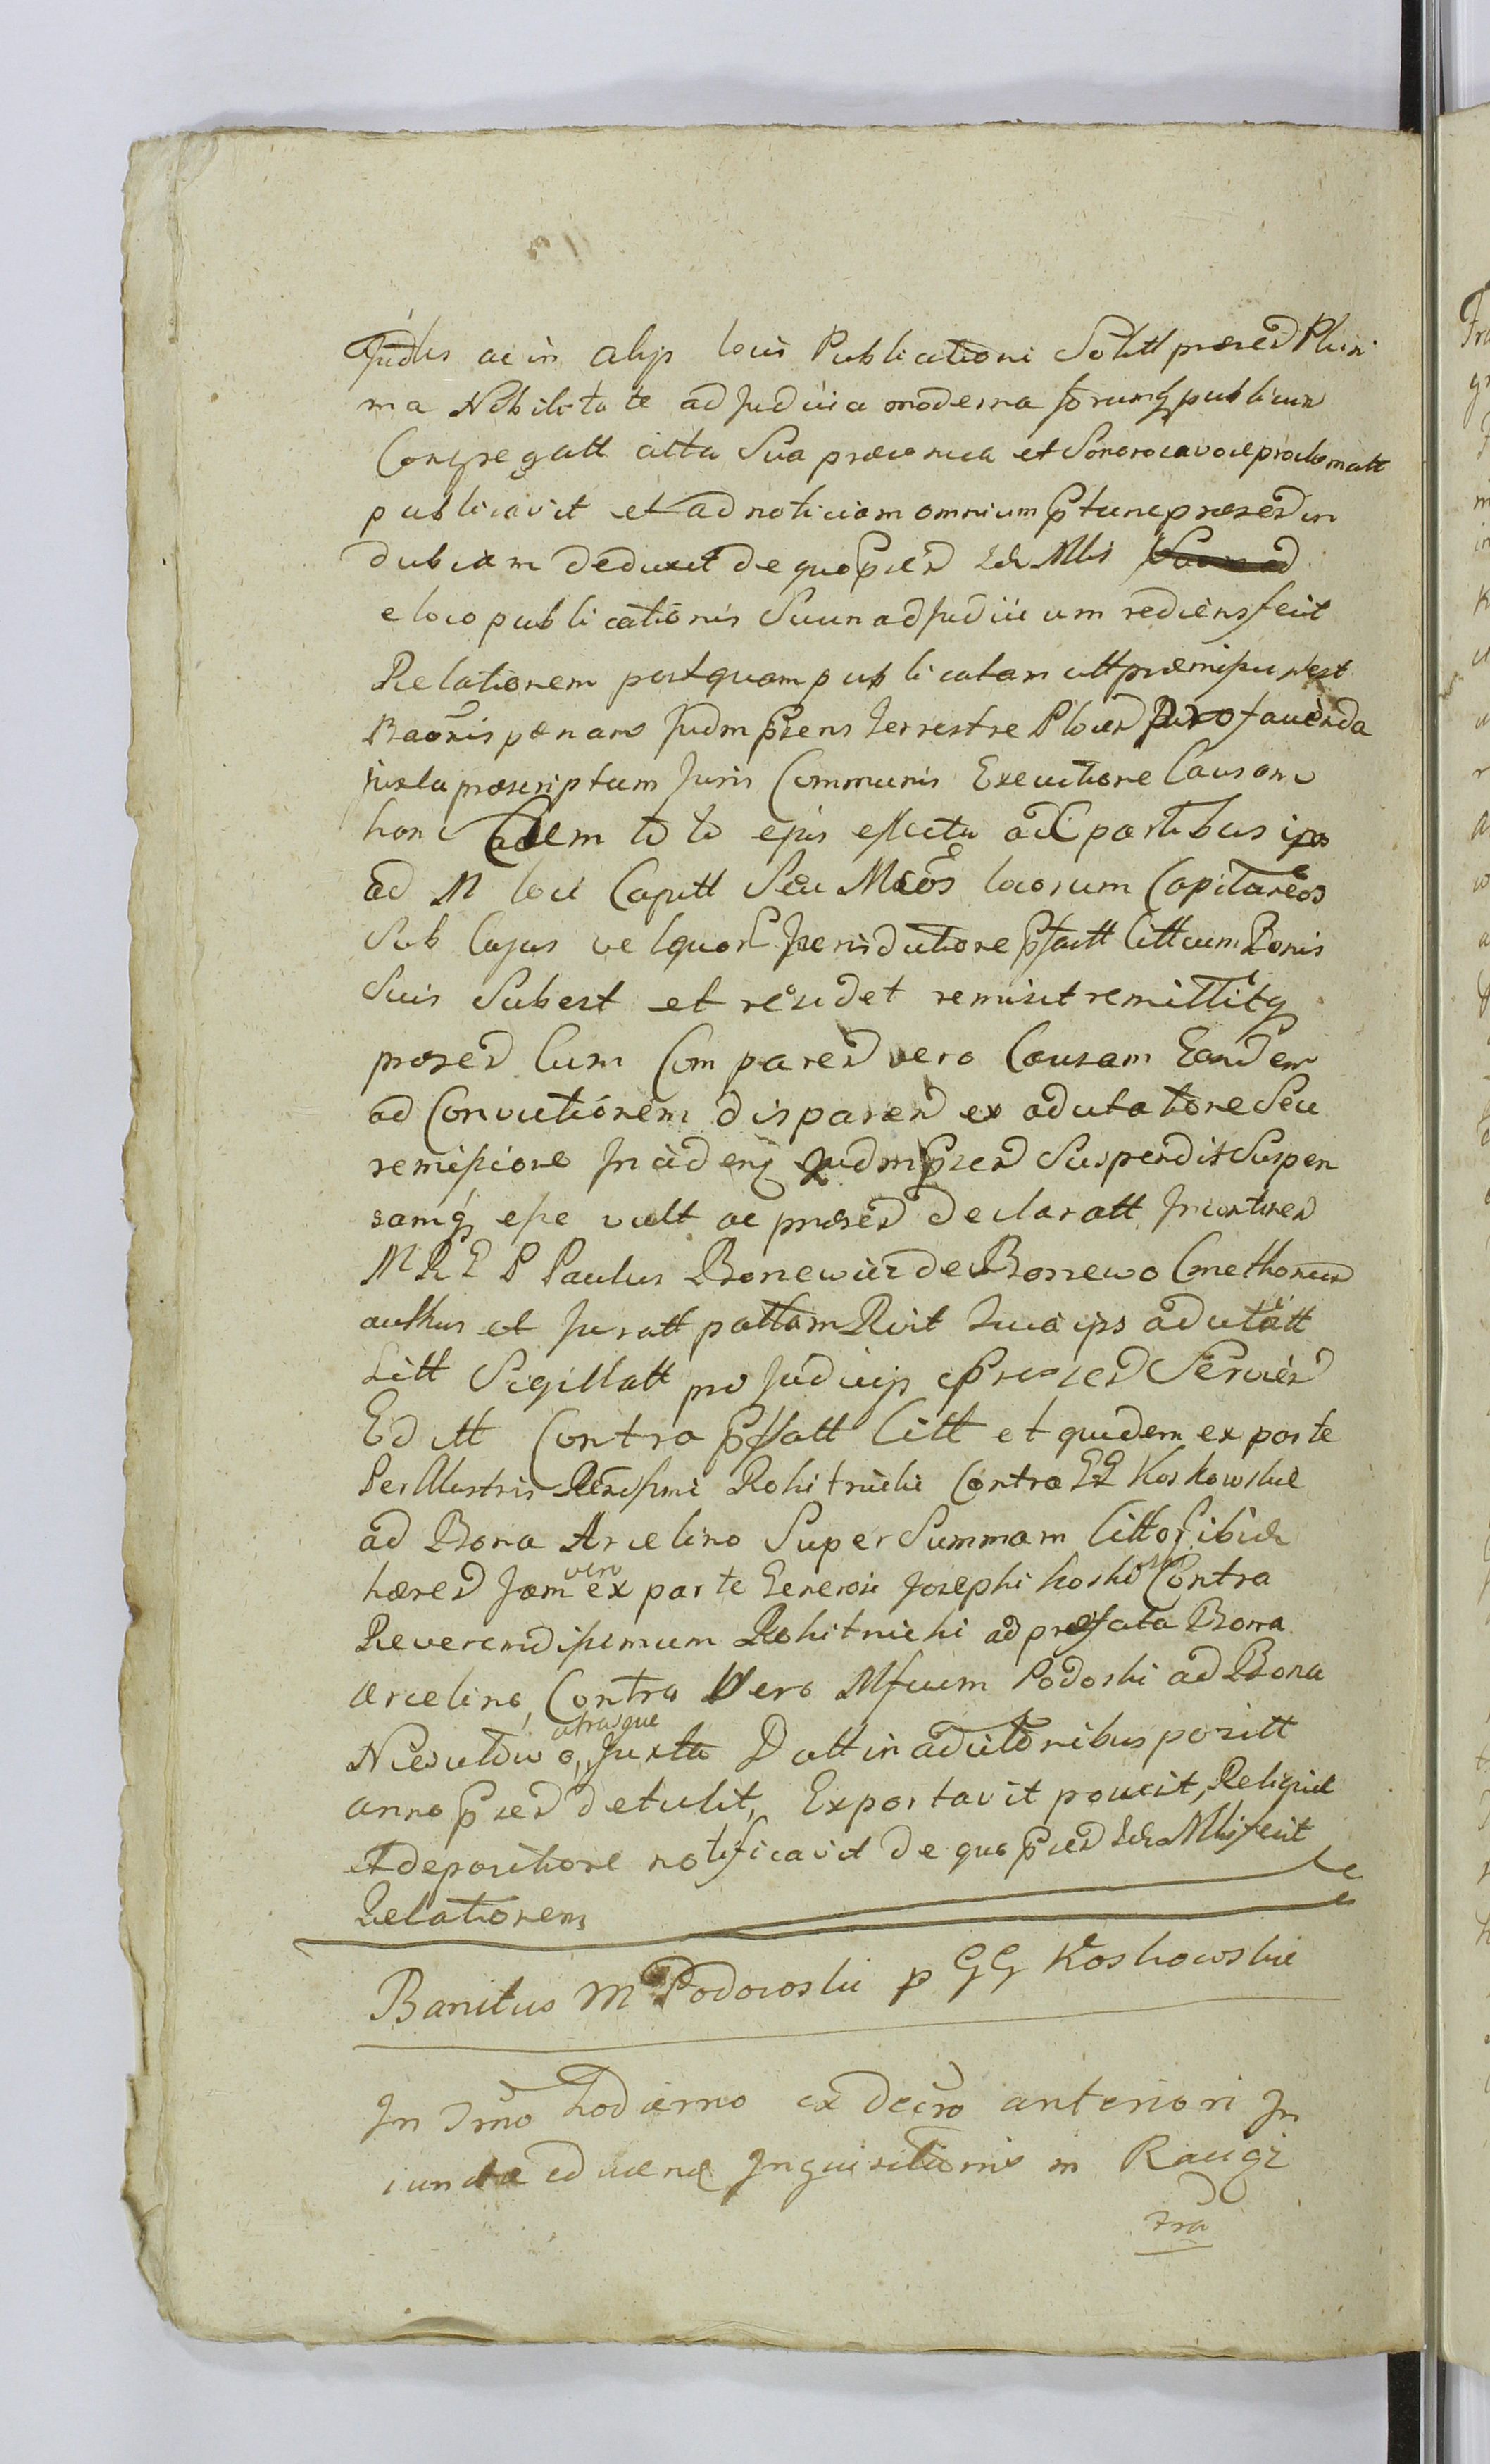 Judlis ac in alijs locis Publicationi Solitt præsed Pluri
ma Nobilitate ad Judicia moderna forumq publicum
Congregatt alta Sua præconica et Sonoroca voce proclamatt
publicavit et ad noticiam omnium ptunc præsed in
dubiam deduxit de quo psed Idē Mlis
e loco publicationis Suum ad Judicium rediens fecit
Relationem postquam publicatam utt præmissu est
Baōnis pænam Judm psens Terrestre Ploced pro favenda
juxta præscriptum Juris Communis Executione Causam
hanc Cūm toto ejus effectu ac partibus
ad M loci Capitt Seu Mcos locorum Capitaneos
Sub Cujus vel quor Jurisdictione pfatt Citt cum Bonis
Suis Subest et residet remisit remittitq
præsed Cum Compared vero Causam Eandem
ad Convictionem dispared ex adcitatione Seu
remissione Incidenq Judm psed Suspendit Suspen
samq esse vult ac præsed declaratt Incontined
M R E P Paulus Bonewicz de Bonewo Cmethoned
authus et Juratt pattam Rvit quia ips adcitatt
Litt Sigillatt pro Judicijs præsed Servied
Editt Contra pffatt Citt et quidem ex parte
Perillustris Rendssmi Rokitnicki Contra GG Koskowskie
ad Bona Arcelino Super Summam Citto ibid
hæred Jam vero ex parte Generosi Josephi Koski Contra
Reverendissimum Rokitnicki ad præfata Bona
Arcelino, Contra Vero Mfcum Podoski ad Bona
utrasque
Niesułowo, Juxta Datt in adcitōnibus positt
anno psed detulit, Exportavit posuit, Reliquit
et depositione notificavit de quo psed Idē Mlis fecit
Relationem
Banitus M Podowski p GG Koskowskie
In Trno hodierno ex decro anteriori In
iuncta
Inquisitionis in Raugz
tra